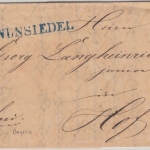 WUNSIEDEL
Herrn
Georg Langheinrich
junior
in
Hof
Bayern